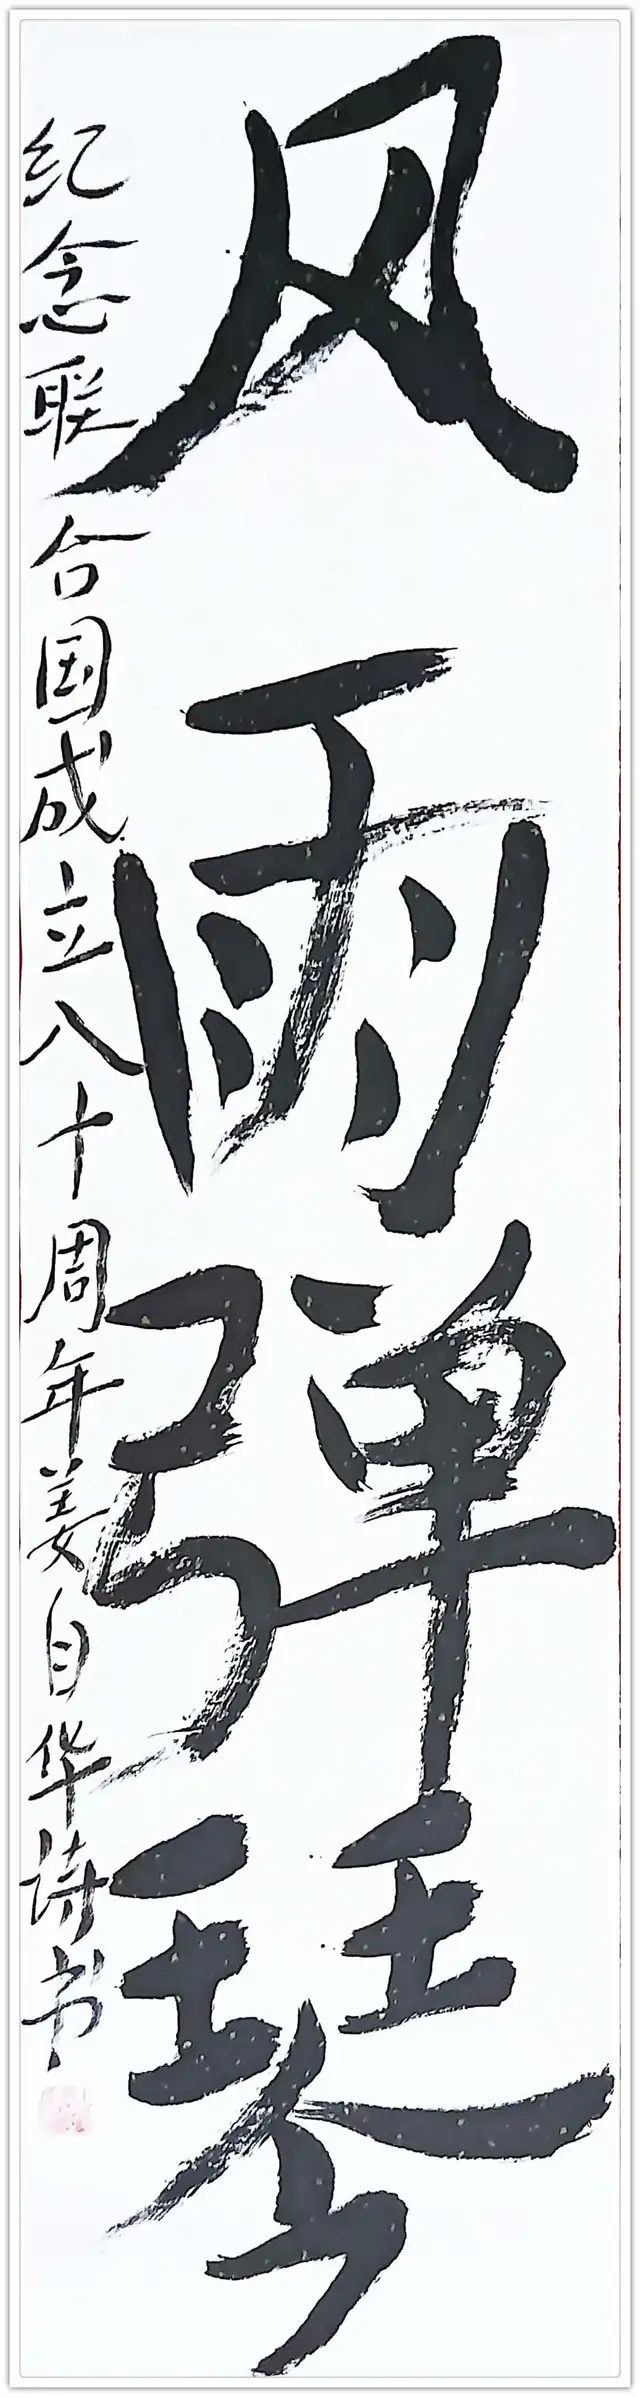 风雨弹琴
纪念联合国成立八十周年姜自华诗书